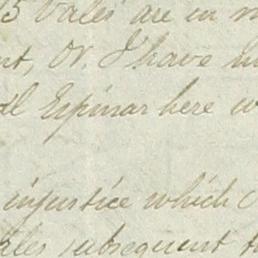 15 Vales are in
nt, Or. I have
il Espinar here
injustice which
les subsequent